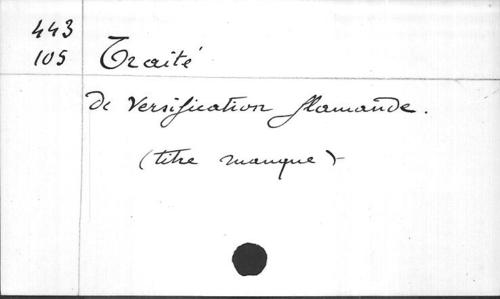 443
105 Traité
de Versification flamande.
(titre manque)